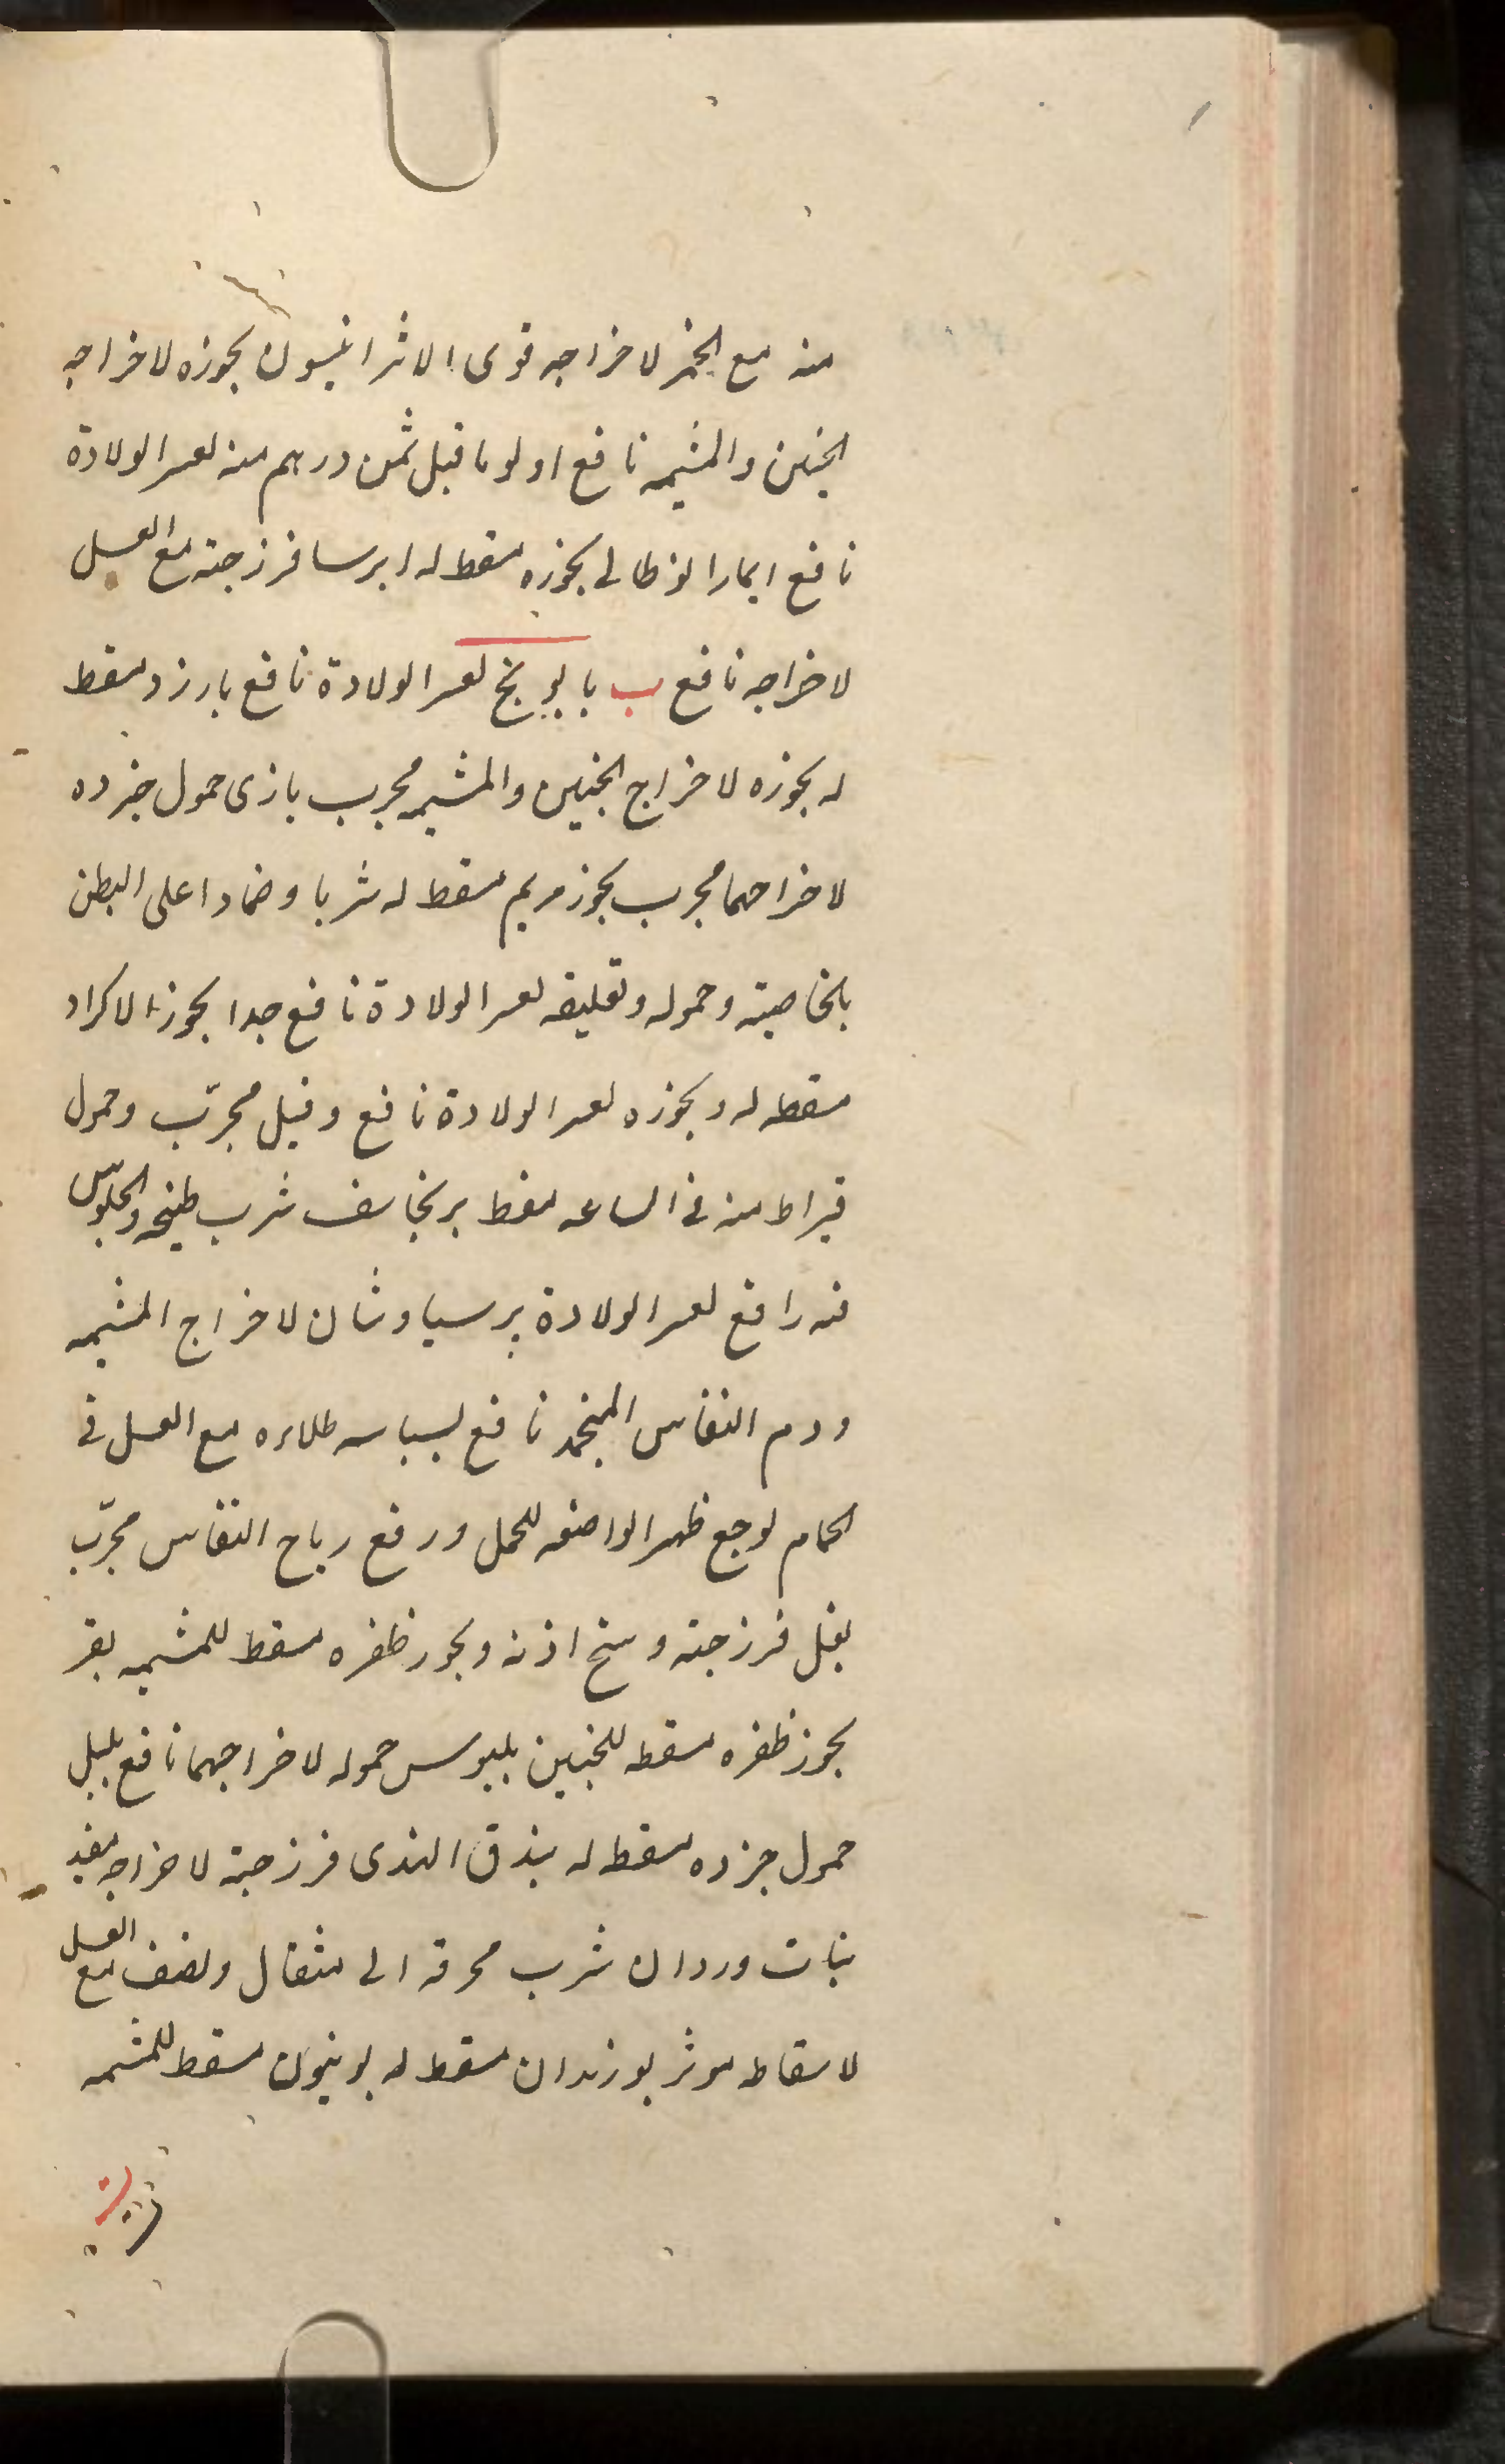 منه مع الخمر لاخراجه قوى الاثر انيسون بخوره لاخراجه
الجنين والمشيمه نافع اولوما قيل ثمن درهم منه لعسر الولادة
نافع ايمارا لوطالى بخوره مسقط له ايرسا فرزجته مع العسل
لاخراجه نافع ب بابونج لعسر الولادة نافع بارزد مسقط
له بخوره لاخراج الجنين والمشيمه مجرب بازى حمول خرده
لاخراجهما مجرب بخور مريم مسقط له شربا وضمادا على البطن
بالخاصيته وحموله وتعليقه لعسر الولادة نافع جدا بخور الاكراد
مسقط له وبخوره لعسر الولادة نافع وقيل مجرّب وحمول
قيراط منه فى الساعه مسقط برنجاسف شرب طبيخه والجلوس
فيه رافع لعسر الولادة پرسياوشان لاخراج المشيمه
ودم النفاس المنجمد نافع بسباسه طلاءه مع العسل فى
الحمام لوجع ظهر الواضعه للحمل ورفع رياح النفاس مجرّب
بغل فرزجته وسخ اذنه وبخور ظفره مسقط للمشيمه بقر
بخور ظفره مسقط للجنين بلبوس حموله لاخراجهما نافع بلبل
حمول خرده مسقط له بندق الهندى فرزجته لاخراجه مفيد
بنات وردان شرب محرقه الى مثقال ونصف مع العسل
لاسقاطه موثر بوزيدان مسقط له بونيون مسقط للمشيمه